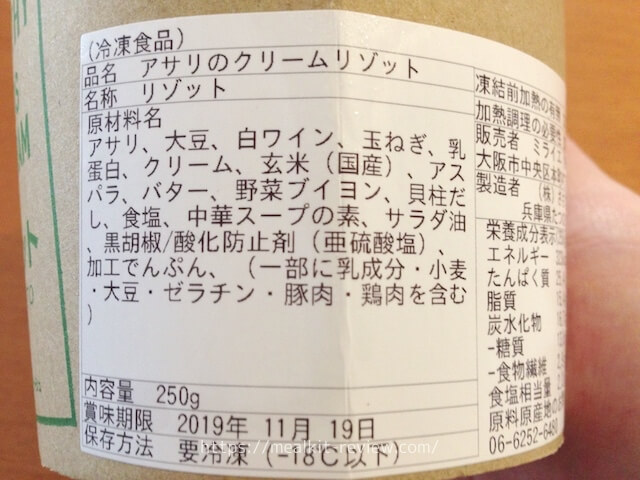 (冷凍食品)
品名 アサリのクリームリゾット
名称 リゾット
原材料名
アサリ、大豆、白ワイン、玉ねぎ、乳
蛋白、クリーム、玄米（国産）、アス
パラ、バター、野菜ブイヨン、貝柱だ
し、食塩、中華スープの素、サラダ油
、黒胡椒/酸化防止剤（亜硫酸塩）、
加工でんぷん、（一部に乳成分・小麦
・大豆・ゼラチン・豚肉・鶏肉を含む
）
内容量 250g
賞味期限 2019年 11月 19日
保存方法 要冷凍（-18℃以下）
凍結前加熱の有無
加熱調理の必要性
販売者 ミライエ
大阪市中央区本
製造者 （株）
兵庫県たつ
栄養成分表示
エネルギー
たんぱく質
脂質
炭水化物
-糖質
-食物繊維
食塩相当量
原料原産地の
06-6252-648
https://mealkit-review.com/